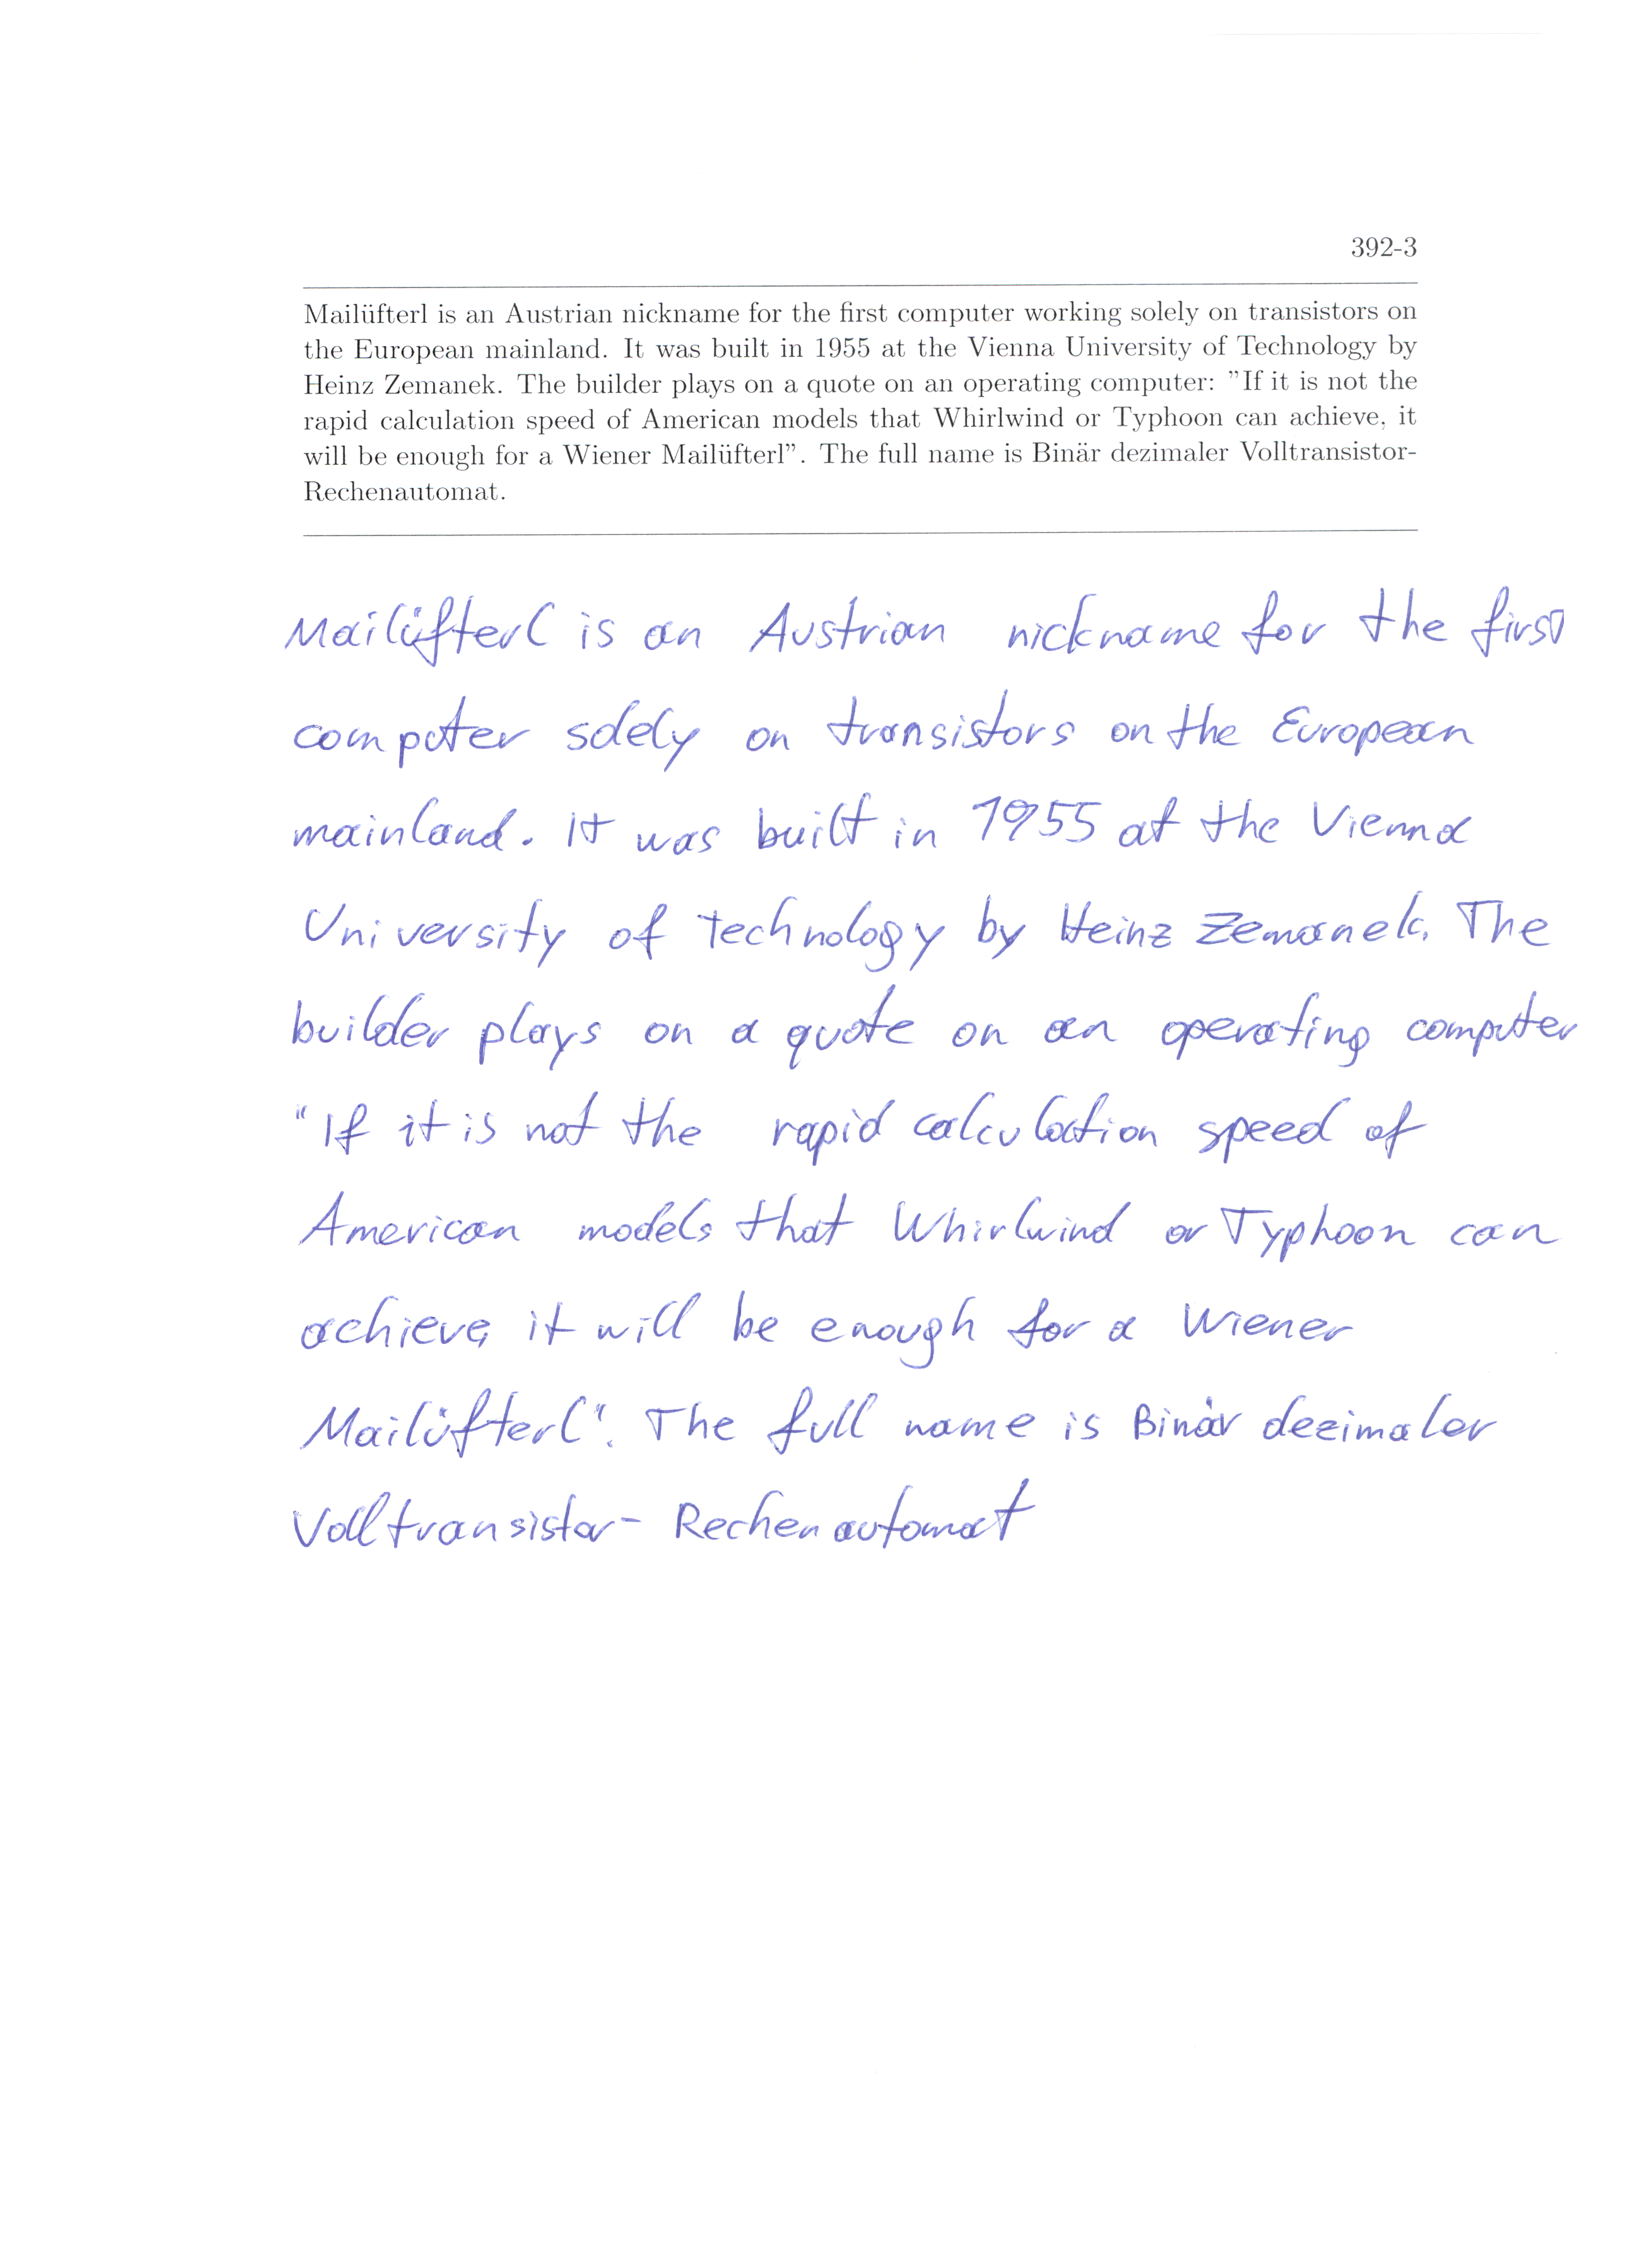 392-3
Mailüfterl is an Austrian nickname for the first computer working solely on transistors on
the European mainland. It was built in 1955 at the Vienna University of Technology by
Heinz Zemanek. The builder plays on a quote on an operating computer: ”If it is not the
rapid calculation speed of American models that Whirlwind or Typhoon can achieve, it
will be enough for a Wiener Mailüfterl”. The full name is Binär dezimaler Volltransistor-
Rechenautomat.
Mailüfterl is an Austrian nickname for the first
computer solely on transistors on the European
mainland. It was built in 1955 at the Vienna
University of technology by Heinz Zemanek. The
builder plays on a quote on an operating computer
"If it is not the rapid calculation speed of
American models that Whirlwind or Typhoon can
achieve, it will be enough for a Wiener
Mailüfterl". The full name is Binär dezimaler
Volltransistor- Rechenautomat